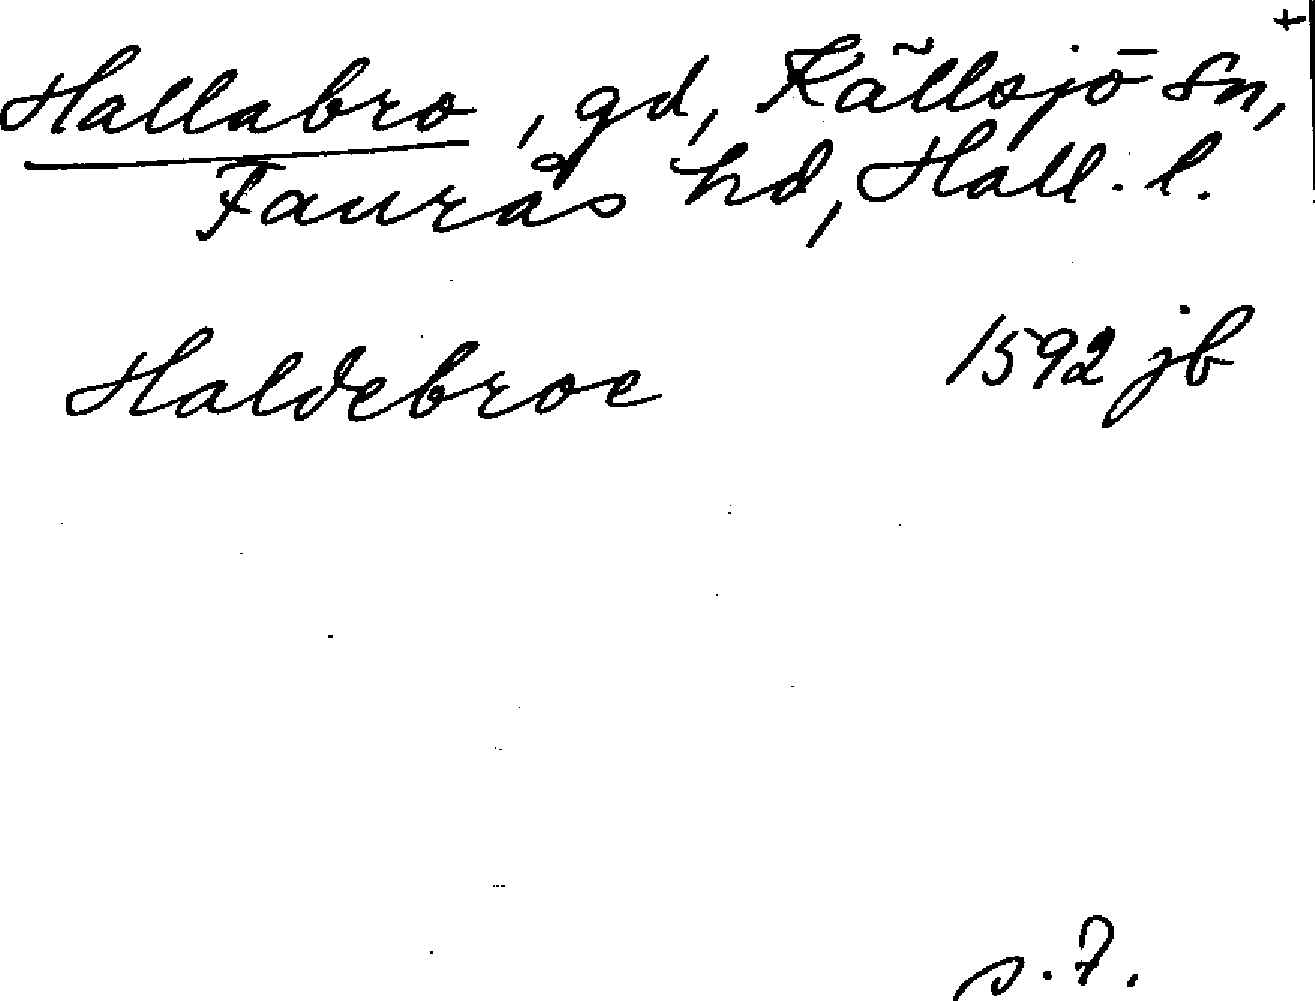 +
Hallabro, gd, Källsjö sn,
Faurås hd, Hall. l.
Haldebroe 1592 jb
s. 7.